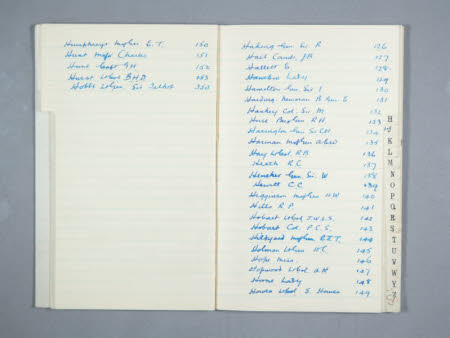 Humphreys MajGen E.T. 150
Hunt Major Charles 151
Hunt Capt GH 152
Hurst LtCol BHD 153
Hobbs LtGen Sir Talbot 350
Haking Gen Sir R 126
Hail Comdr JB 127
Hallett E. 128
Hamilton Lady 129
Hamilton Gen Sir I 130
Harding Newman B Gen E 131
Hankey Col. Sir M 132
Hare BrigGen RH 133
Harington Gen Sir CH 134
Harman MajGen 135
Hay LtCol RB 136
Heath R C 137
Heneker Gen Sir W 138
Hewett C C 139
Higginson MajGen HW 140
Hills R P 141
Hobart LtCol J.W.L.S. 142
Hobart Col P.C.S. 143
Hildyard MajGen R.J.T. 144
Holman LtGen HC 145
Hope Miss 146
Hopwood LtCol AH 147
Horne Lady 148
Howes LtCol S. 149
H
K
L
M
N
O
P
Q
R
S
T
U
V
W
Y